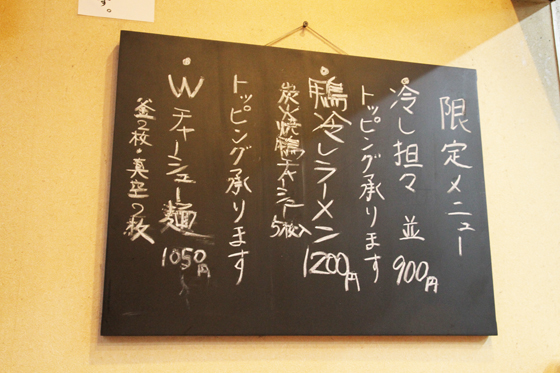 す。
限定メニュー
冷し担々 並 900円
トッピング承ります
鴨冷しラーメン 1200円
炭火焼鴨チャーシュー5枚入
トッピング承ります
Wチャーシュー麺 1050円
釜2枚・真空2枚